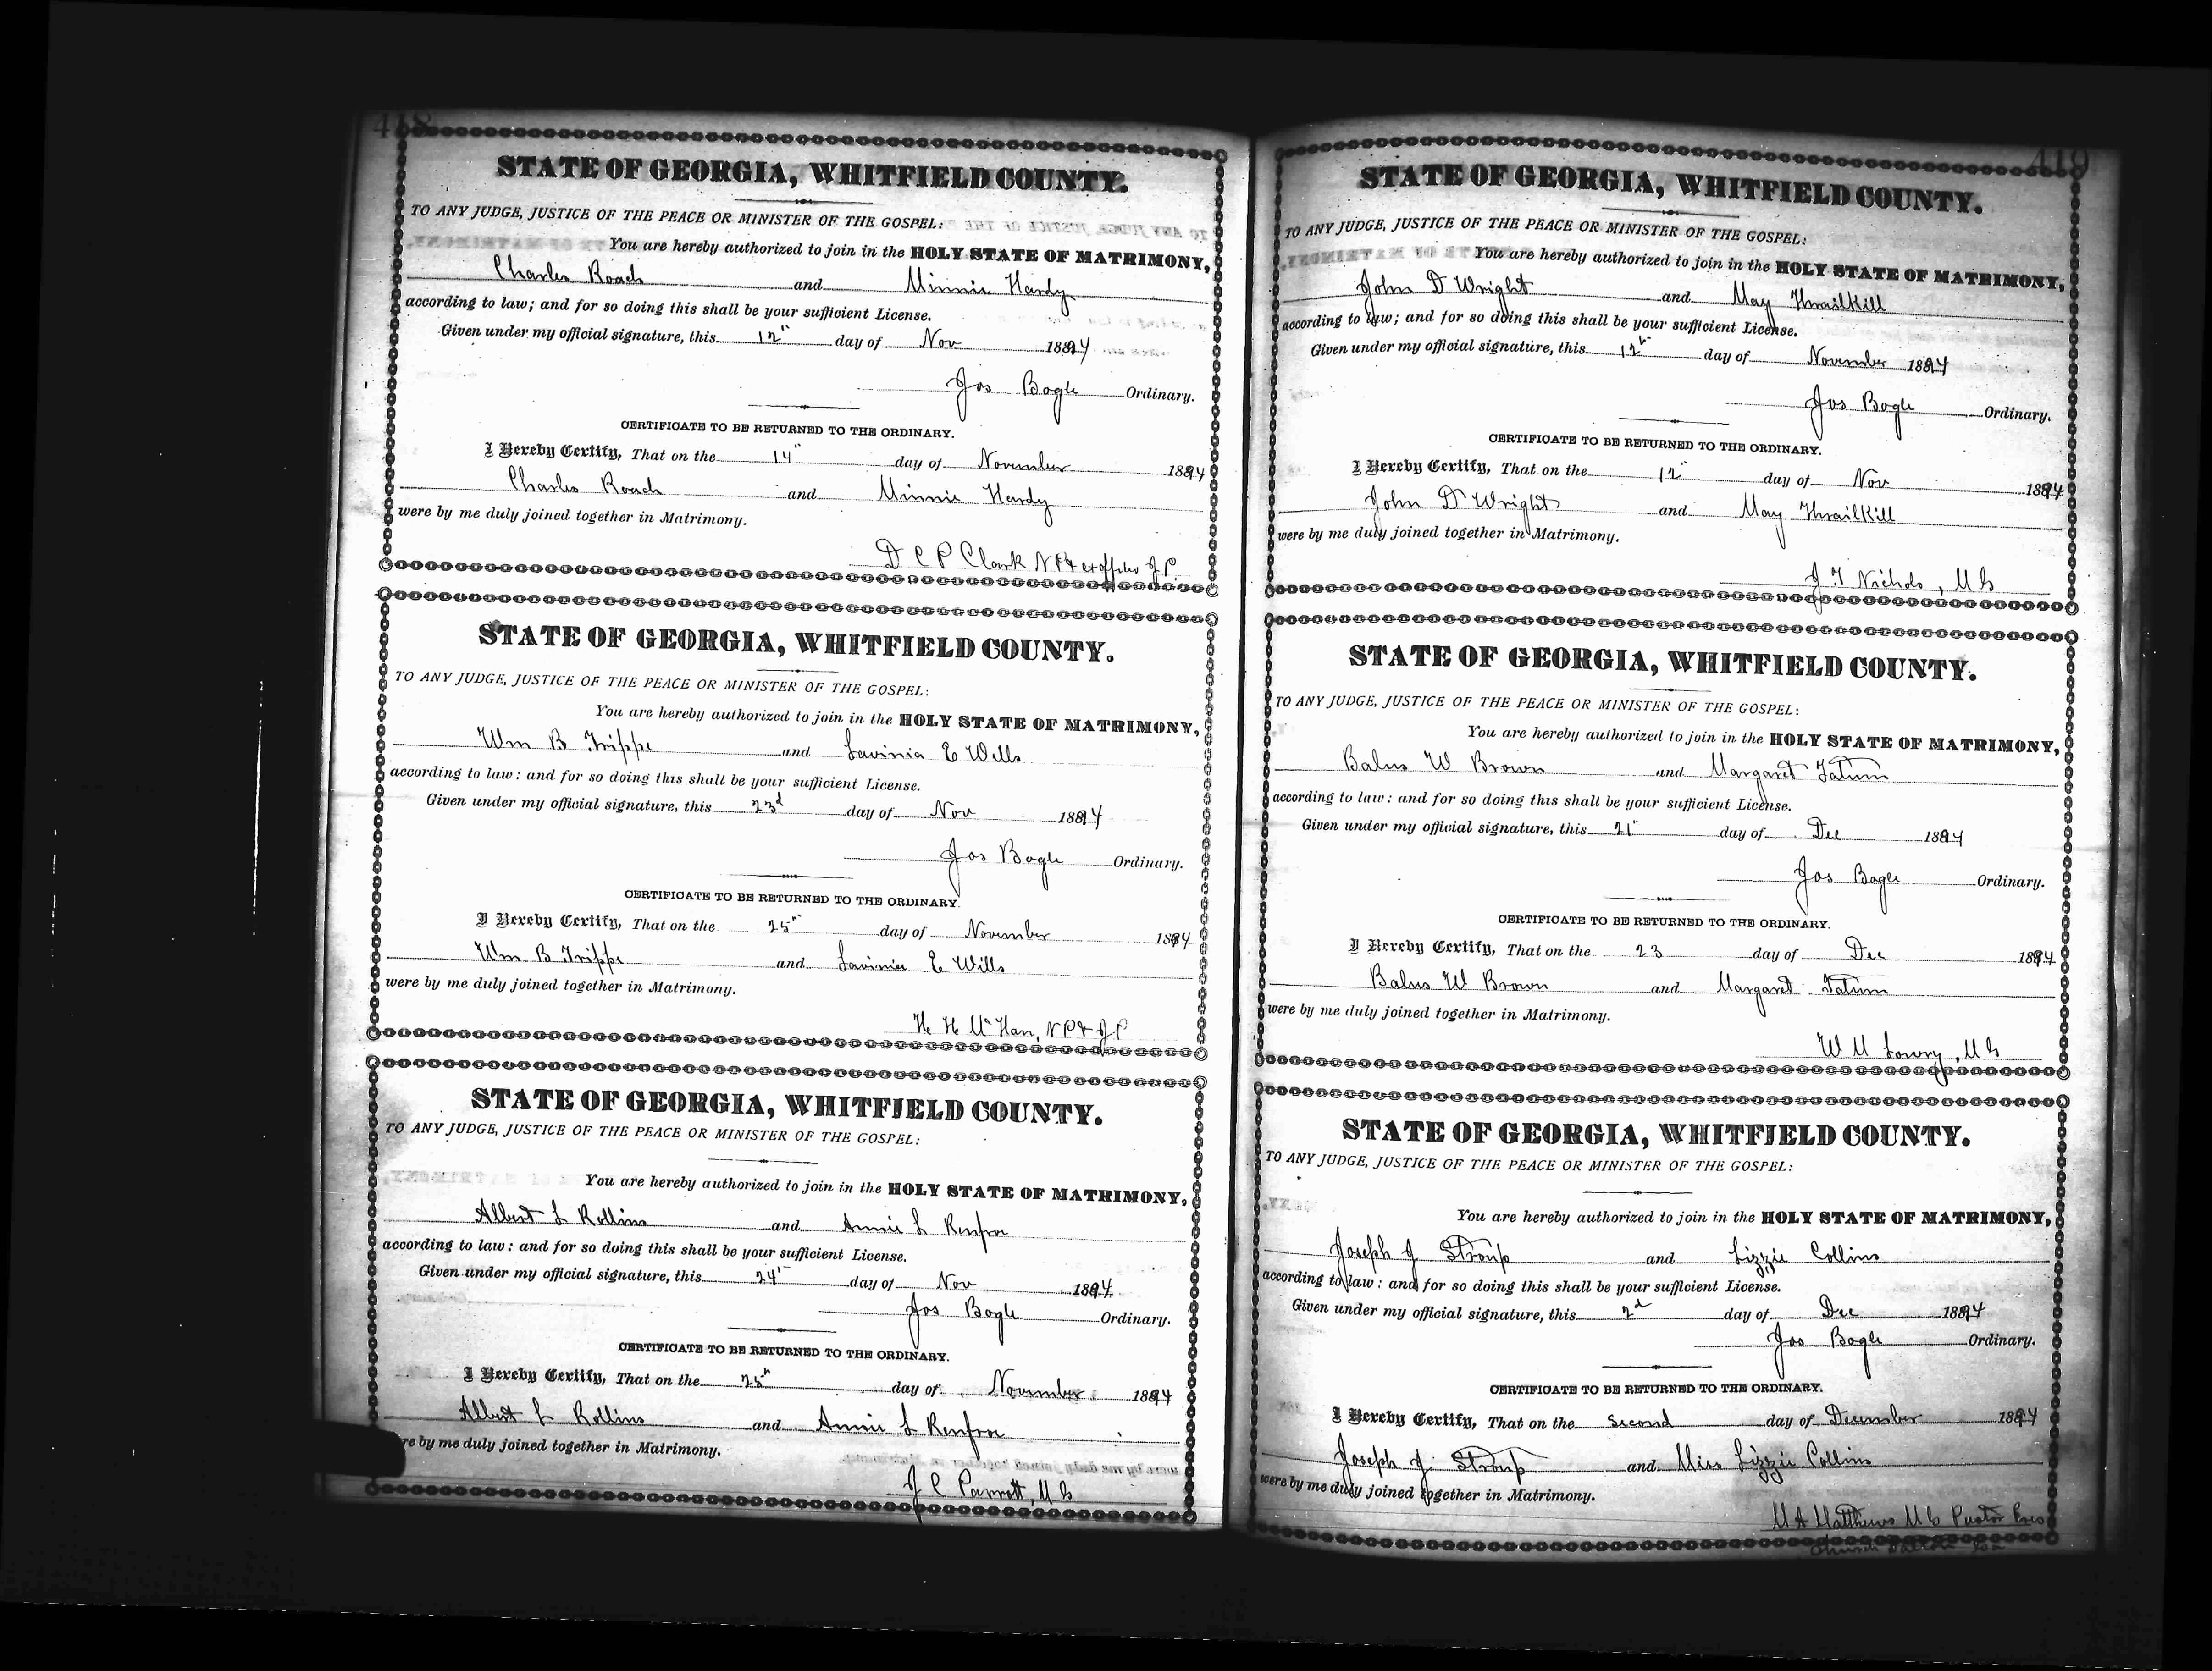 418
STATE OF GEORGIA, WHITFIELD COUNTY.
TO ANY JUDGE, JUSTICE OF THE PEACE OR MINISTER OF THE GOSPEL:
You are hereby authorized to join in the HOLY STATE OF MATRIMONY,
Charles Roach and Minnie Hardy
according to law; and for so doing this shall be your sufficient License.
Given under my official signature, this 12" day of Nov 1894
Jos Bogle Ordinary.
CERTIFICATE TO BE RETURNED TO THE ORDINARY.
I Hereby Certify, That on the 14" day of November 1894
Charles Roach and Minnie Hardy
were by me duly joined together in Matrimony.
D C P Clark N P & ex officio J P.
STATE OF GEORGIA, WHITFIELD COUNTY.
TO ANY JUDGE, JUSTICE OF THE PEACE OR MINISTER OF THE GOSPEL:
You are hereby authorized to join in the HOLY STATE OF MATRIMONY,
Wm B Trippe and Lavinia E Wills
according to law: and for so doing this shall be your sufficient License.
Given under my official signature, this 23d day of Nov 1894
Jos Bogle Ordinary.
CERTIFICATE TO BE RETURNED TO THE ORDINARY.
I Hereby Certify, That on the 25" day of November 1894
Wm B Trippe and Lavinia E Wills
were by me duly joined together in Matrimony.
H H McHan, N P & J P
STATE OF GEORGIA, WHITFIELD COUNTY.
TO ANY JUDGE, JUSTICE OF THE PEACE OR MINISTER OF THE GOSPEL:
You are hereby authorized to join in the HOLY STATE OF MATRIMONY,
Albert L Rollins and Annie L Renfroe
according to law: and for so doing this shall be your sufficient License.
Given under my official signature, this 24" day of Nov 1894
Jos Bogle Ordinary.
CERTIFICATE TO BE RETURNED TO THE ORDINARY.
I Hereby Certify, That on the 25h day of November 1894
Albert L Rollins and Annie L Renfroe
re by me duly joined together in Matrimony.
J C Parrott, M G
419
STATE OF GEORGIA, WHITFIELD COUNTY.
TO ANY JUDGE, JUSTICE OF THE PEACE OR MINISTER OF THE GOSPEL:
You are hereby authorized to join in the HOLY STATE OF MATRIMONY,
John D Wright and May Thrailkill
according to law; and for so doing this shall be your sufficient License.
Given under my official signature, this 12h day of November 1894
Jos Bogle Ordinary.
CERTIFICATE TO BE RETURNED TO THE ORDINARY.
I Hereby Certify, That on the 12" day of Nov 1894
John D Wright and May Thrailkill
were by me duly joined together in Matrimony.
J T Nichols, M G
STATE OF GEORGIA, WHITFIELD COUNTY.
TO ANY JUDGE, JUSTICE OF THE PEACE OR MINISTER OF THE GOSPEL:
You are hereby authorized to join in the HOLY STATE OF MATRIMONY,
Balus W Brown and Margaret Tatum
according to law: and for so doing this shall be your sufficient License.
Given under my official signature, this 21" day of Dec 1894
Jos Bogle Ordinary.
CERTIFICATE TO BE RETURNED TO THE ORDINARY.
I Hereby Certify, That on the 23 day of Dec 1894
Balus W Brown and Margaret Tatum
were by me duly joined together in Matrimony.
W M Lowry, M G
STATE OF GEORGIA, WHITFIELD COUNTY.
TO ANY JUDGE, JUSTICE OF THE PEACE OR MINISTER OF THE GOSPEL:
You are hereby authorized to join in the HOLY STATE OF MATRIMONY,
Joseph J Stroup and Lizzie Collins
according to law: and for so doing this shall be your sufficient License.
Given under my official signature, this 2d day of Dec 1894
Jos Bogle Ordinary.
CERTIFICATE TO BE RETURNED TO THE ORDINARY.
I Hereby Certify, That on the Second day of December 1894
Joseph J. Stroup and Miss Lizzie Collins
were by me duly joined together in Matrimony.
M A Matthews M G Pastor Pres
Church Dalton Ga